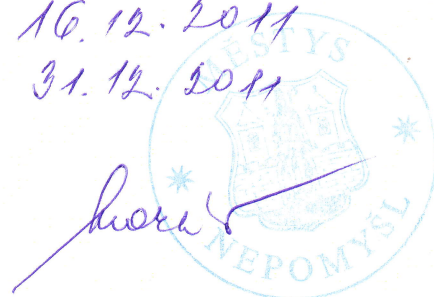 16.12.2011
31.12.2011
MĚSTYS
NEPOMYŠL